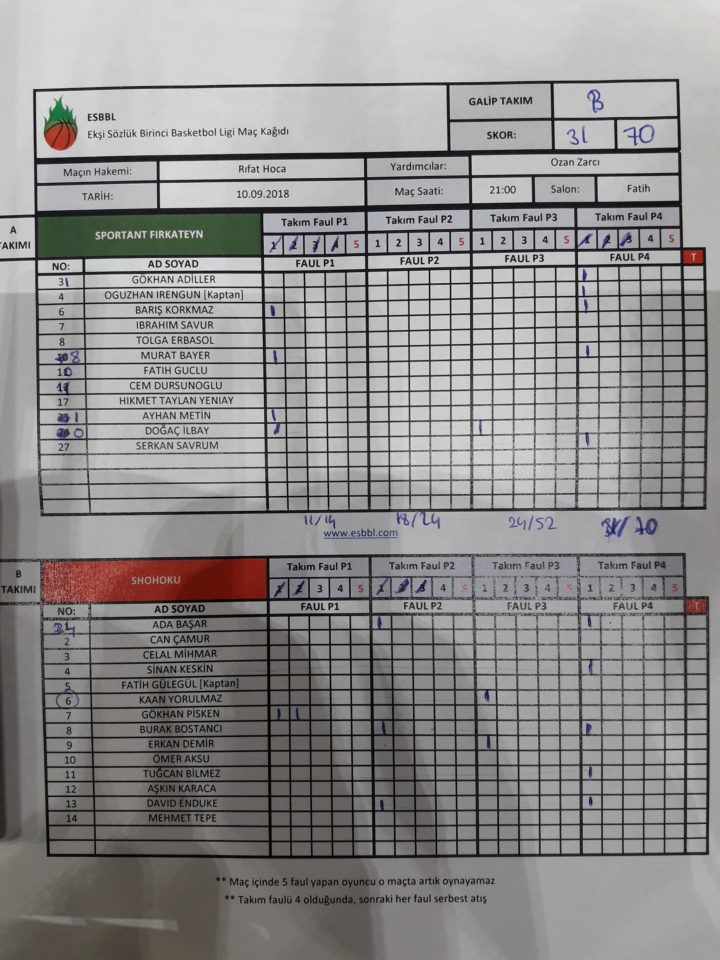 ESBBL
Ekşi Sözlük Birinci Basketbol Ligi Maç Kağıdı
GALİP TAKIM B
SKOR: 31 70
Maçın Hakemi: Rıfat Hoca Yardımcılar: Ozan Zarcı
TARİH: 10.09.2018 Maç Saati: 21:00 Salon: Fatih
A TAKIMI
SPORTANT FIRKATEYN
Takım Faul P1 Takım Faul P2 Takım Faul P3 Takım Faul P4
1 2 3 4 5 1 2 3 4 5 1 2 3 4 5 1 2 3 4 5
NO: AD SOYAD FAUL P1 FAUL P2 FAUL P3 FAUL P4 T
31 GÖKHAN ADİLLER
4 OGUZHAN IRENGUN [Kaptan]
6 BARIŞ KORKMAZ
7 IBRAHIM SAVUR
8 TOLGA ERBASOL
8 MURAT BAYER
10 FATIH GUCLU
CEM DURSUNOGLU
17 HIKMET TAYLAN YENIAY
1 AYHAN METİN
0 DOĞAÇ İLBAY
27 SERKAN SAVRUM
11/14 18/24 24/52 31/70
www.esbbl.com
B TAKIMI
SHOHOKU
Takım Faul P1 Takım Faul P2 Takım Faul P3 Takım Faul P4
1 2 3 4 5 1 2 3 4 5 1 2 3 4 5 1 2 3 4 5
NO: AD SOYAD FAUL P1 FAUL P2 FAUL P3 FAUL P4 T
ADA BAŞAR
2 CAN ÇAMUR
3 CELAL MİHMAR
4 SİNAN KESKİN
5 FATİH GÜLEGÜL [Kaptan]
6 KAAN YORULMAZ
7 GÖKHAN PİSKEN
8 BURAK BOSTANCI
9 ERKAN DEMİR
10 ÖMER AKSU
11 TUĞCAN BİLMEZ
12 AŞKIN KARACA
13 DAVID ENDUKE
14 MEHMET TEPE
** Maç içinde 5 faul yapan oyuncu o maçta artık oynayamaz
** Takım faulü 4 olduğunda, sonraki her faul serbest atış